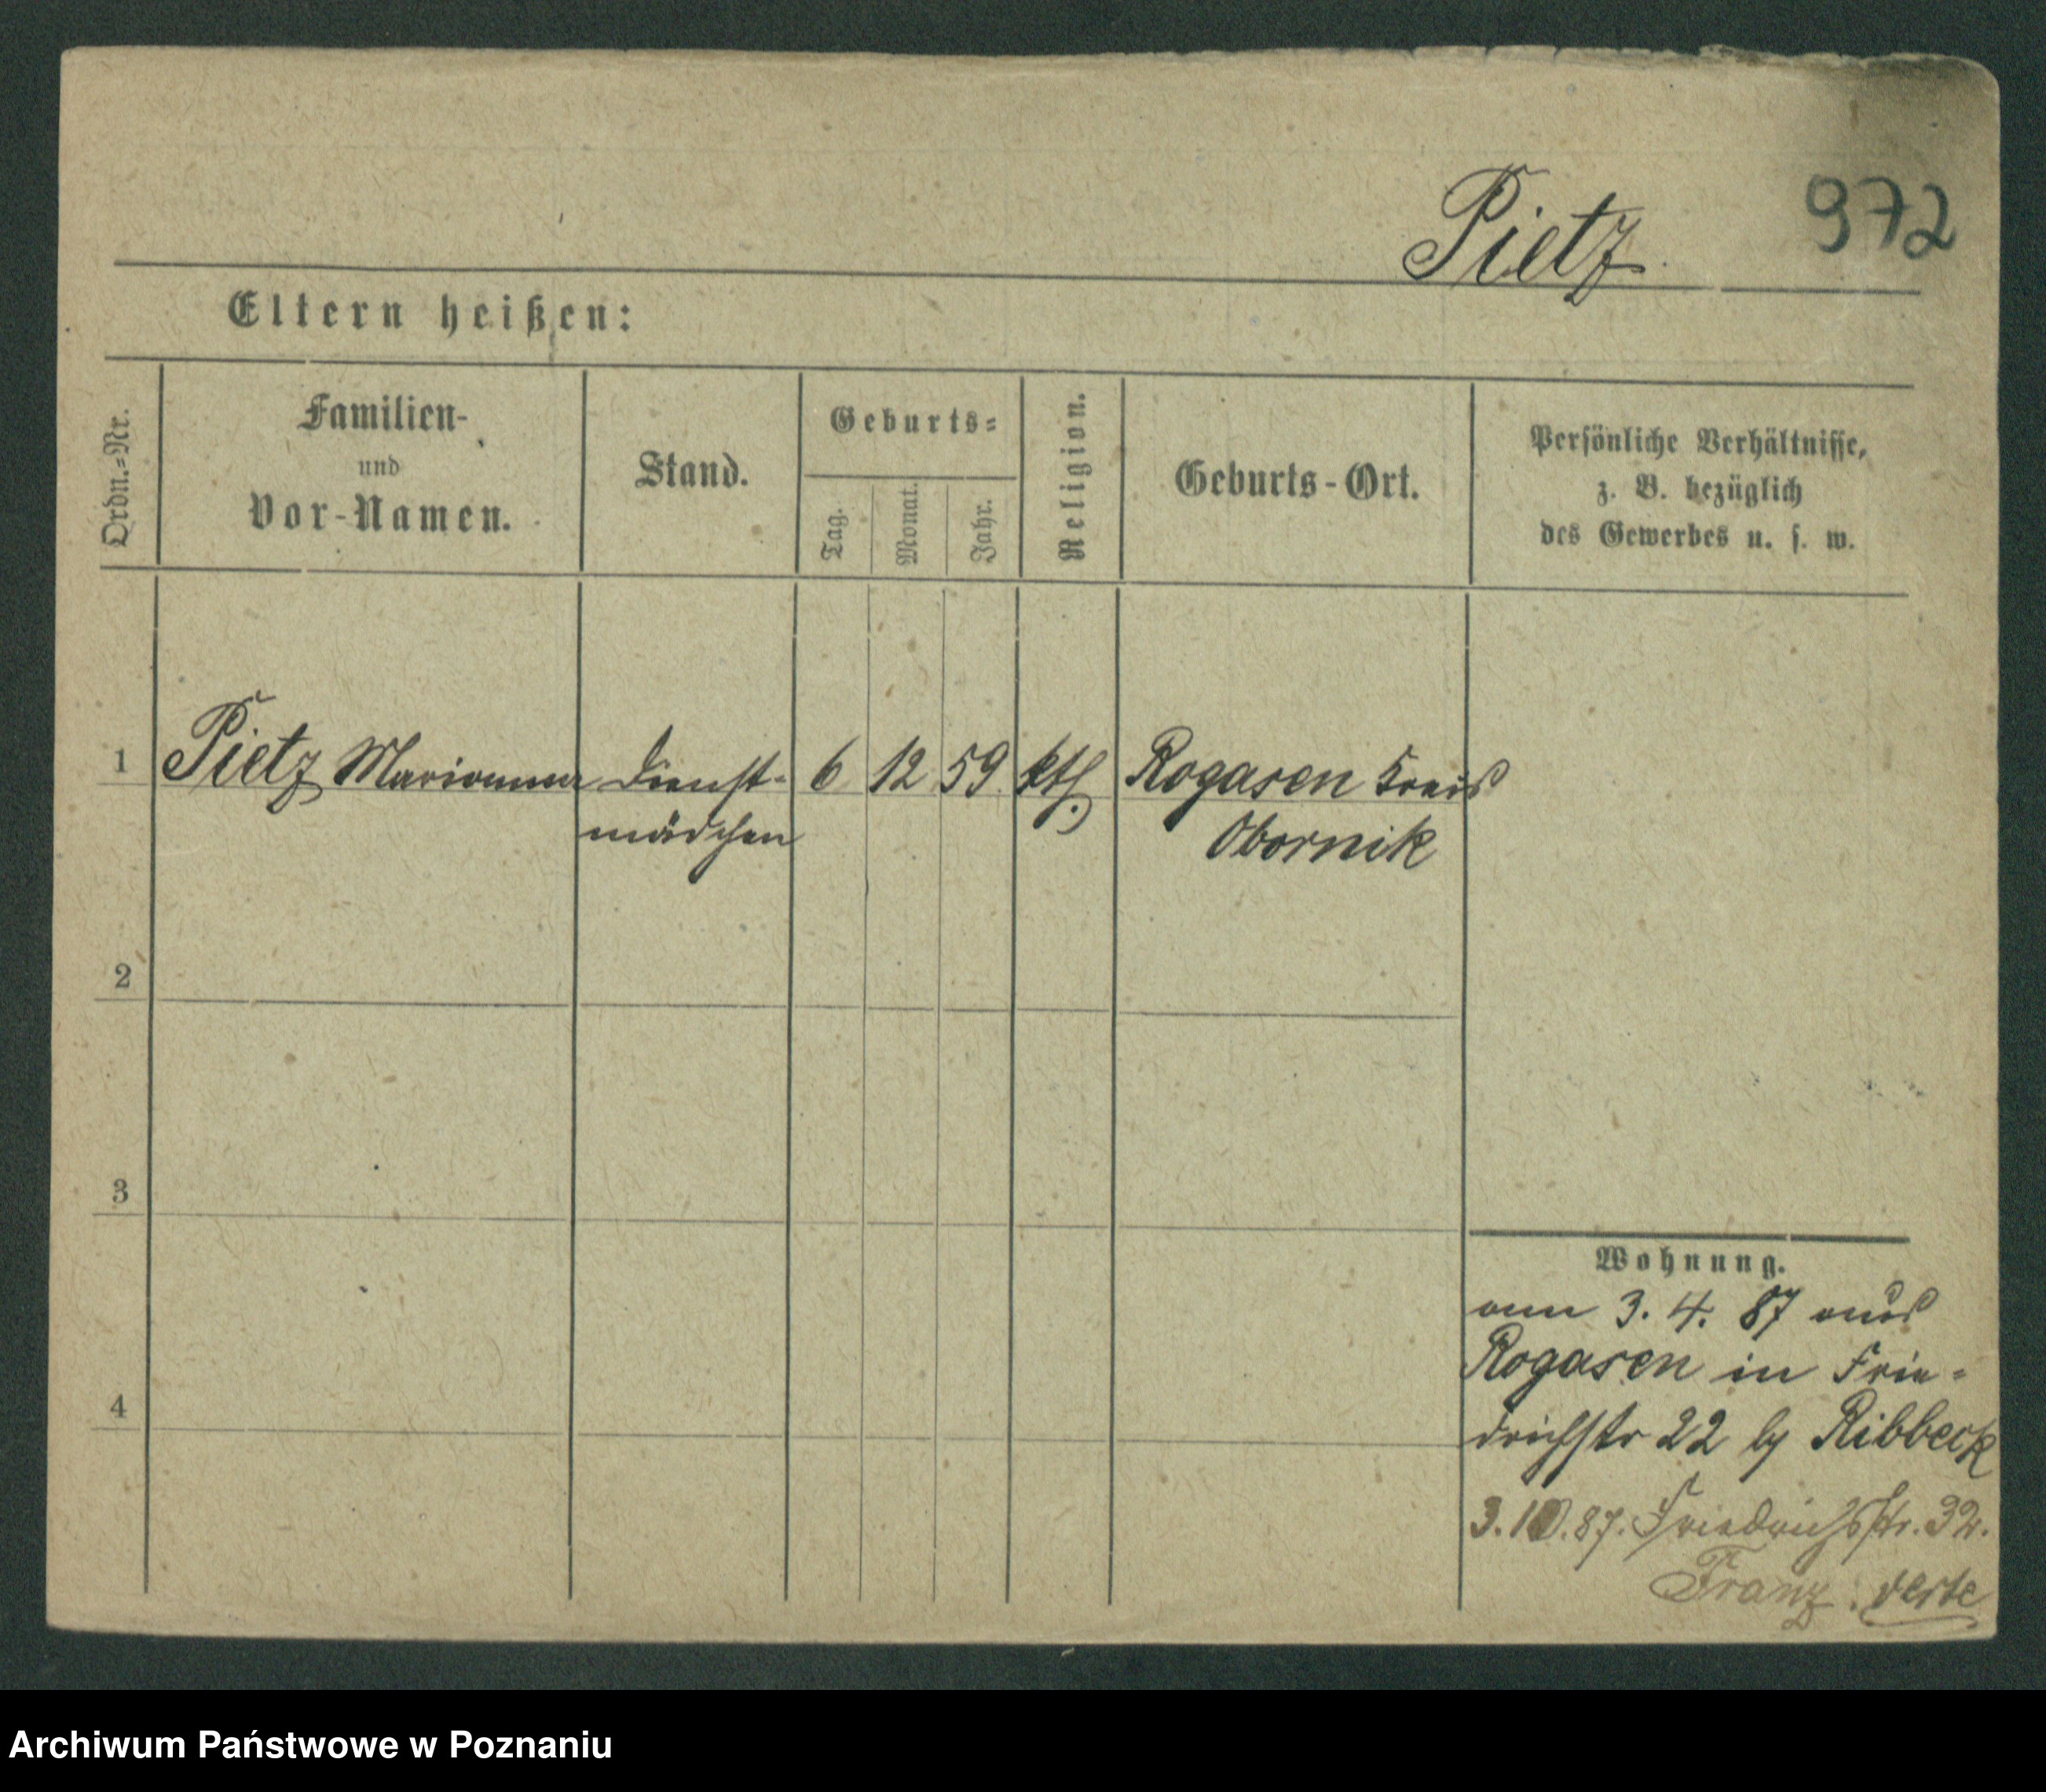 Pietz 972
Eltern heißen:
Ordn.-Nr.
Familien-
und
Vor-Namen.
Stand.
Geburts-
Tag.
Monat.
Jahr.
Religion.
Geburts-Ort.
Persönliche Verhältnisse,
z. B. bezüglich
des Gewerbes u. s. w.
1 Pietz Marianna Dienst- 6 12 59 kth. Rogasen Kreis
mädchen Obornik
2
3
4
Wohnung.
am 3. 4. 87 aus
Rogasen in Frie-
drichstr 22 by Ribbeck
3.10.87. Friedrichstr. 32.
Franz.
Archiwum Państwowe w Poznaniu